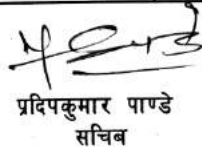 प्रदिपकुमार पाण्डे
सचिब